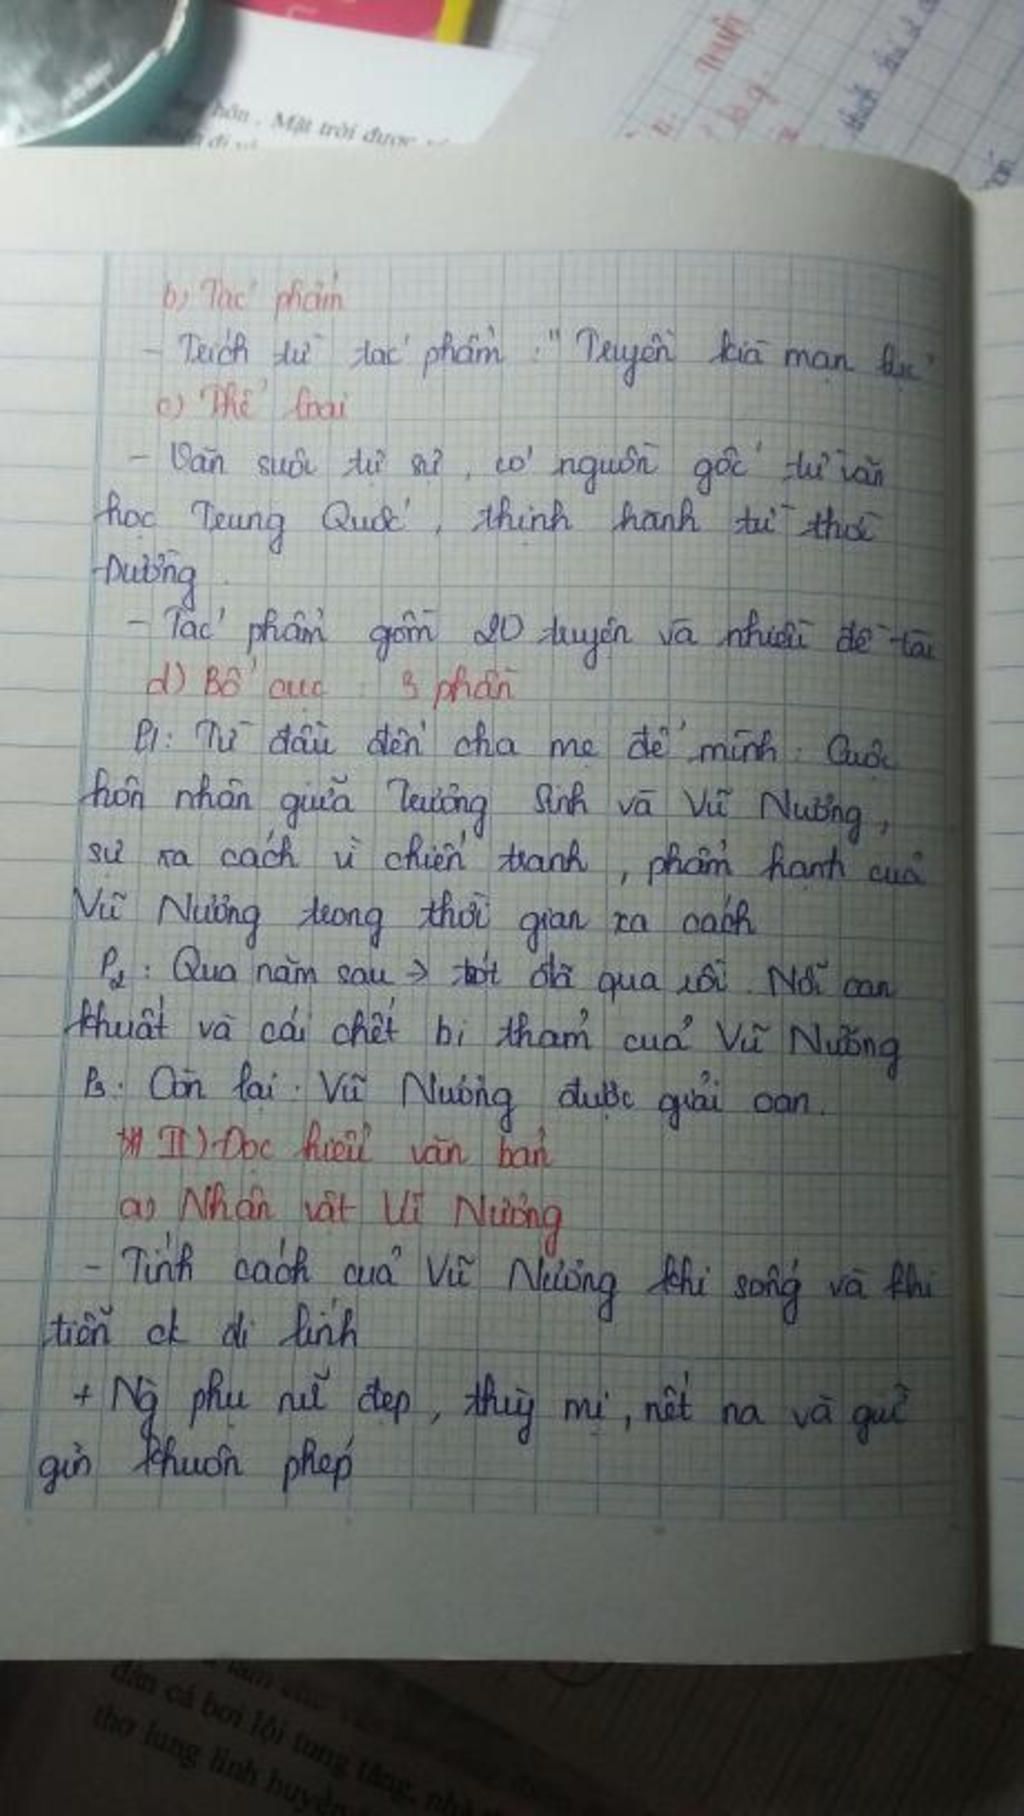 hôn. Mặt trời được
b) Tác phẩm
- Trích từ tác phẩm: "Truyền kì mạn lục"
c) Thể loại
- Văn suôi tự sự, có nguồn gốc từ văn
học Trung Quốc, thịnh hành từ thời
Đường.
- Tác phẩm gồm 20 truyện và nhiều đề tài
d) Bố cục: 3 phần
P1: Từ đầu đến cha mẹ đẻ mình: Cuộc
hôn nhân giữa Trương Sinh và Vũ Nương,
sự xa cách vì chiến tranh, phẩm hạnh của
Vũ Nương trong thời gian xa cách
P2: Qua năm sau -> trót đã qua rồi. Nỗi oan
khuất và cái chết bi thảm của Vũ Nương
P3: Còn lại: Vũ Nương được giải oan.
II) Đọc hiểu văn bản
a) Nhân vật Vũ Nương
- Tính cách của Vũ Nương khi sống và khi
tiễn ck đi lính
+ Ng phụ nữ đẹp, thùy mị, nết na và giữ
gìn khuôn phép
đàn cá bơi lội tung tăng,
thơ lung linh huyền